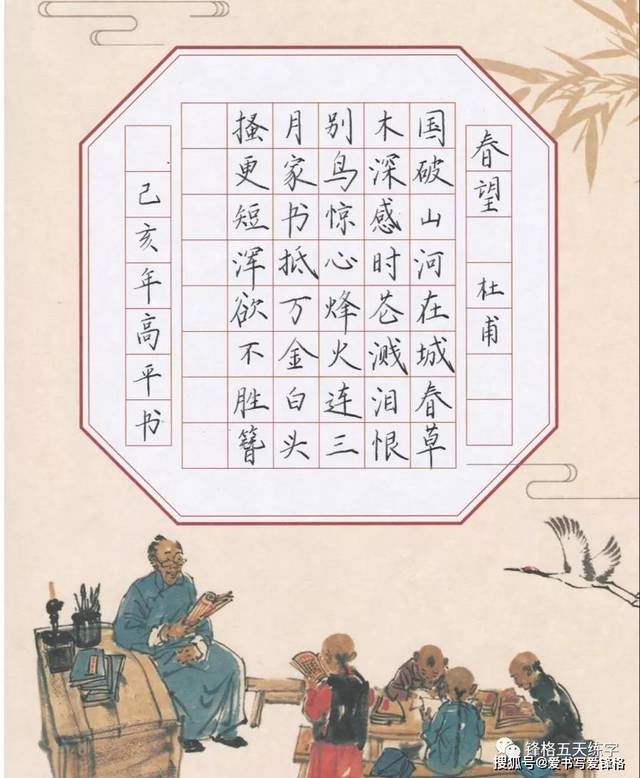 春望 杜甫
国破山河在城春草
木深感时花溅泪恨
别鸟惊心烽火连三
月家书抵万金白头
搔更短浑欲不胜簪
己亥年高平书
锋格五天练字
搜狐号@爱书写爱锋格